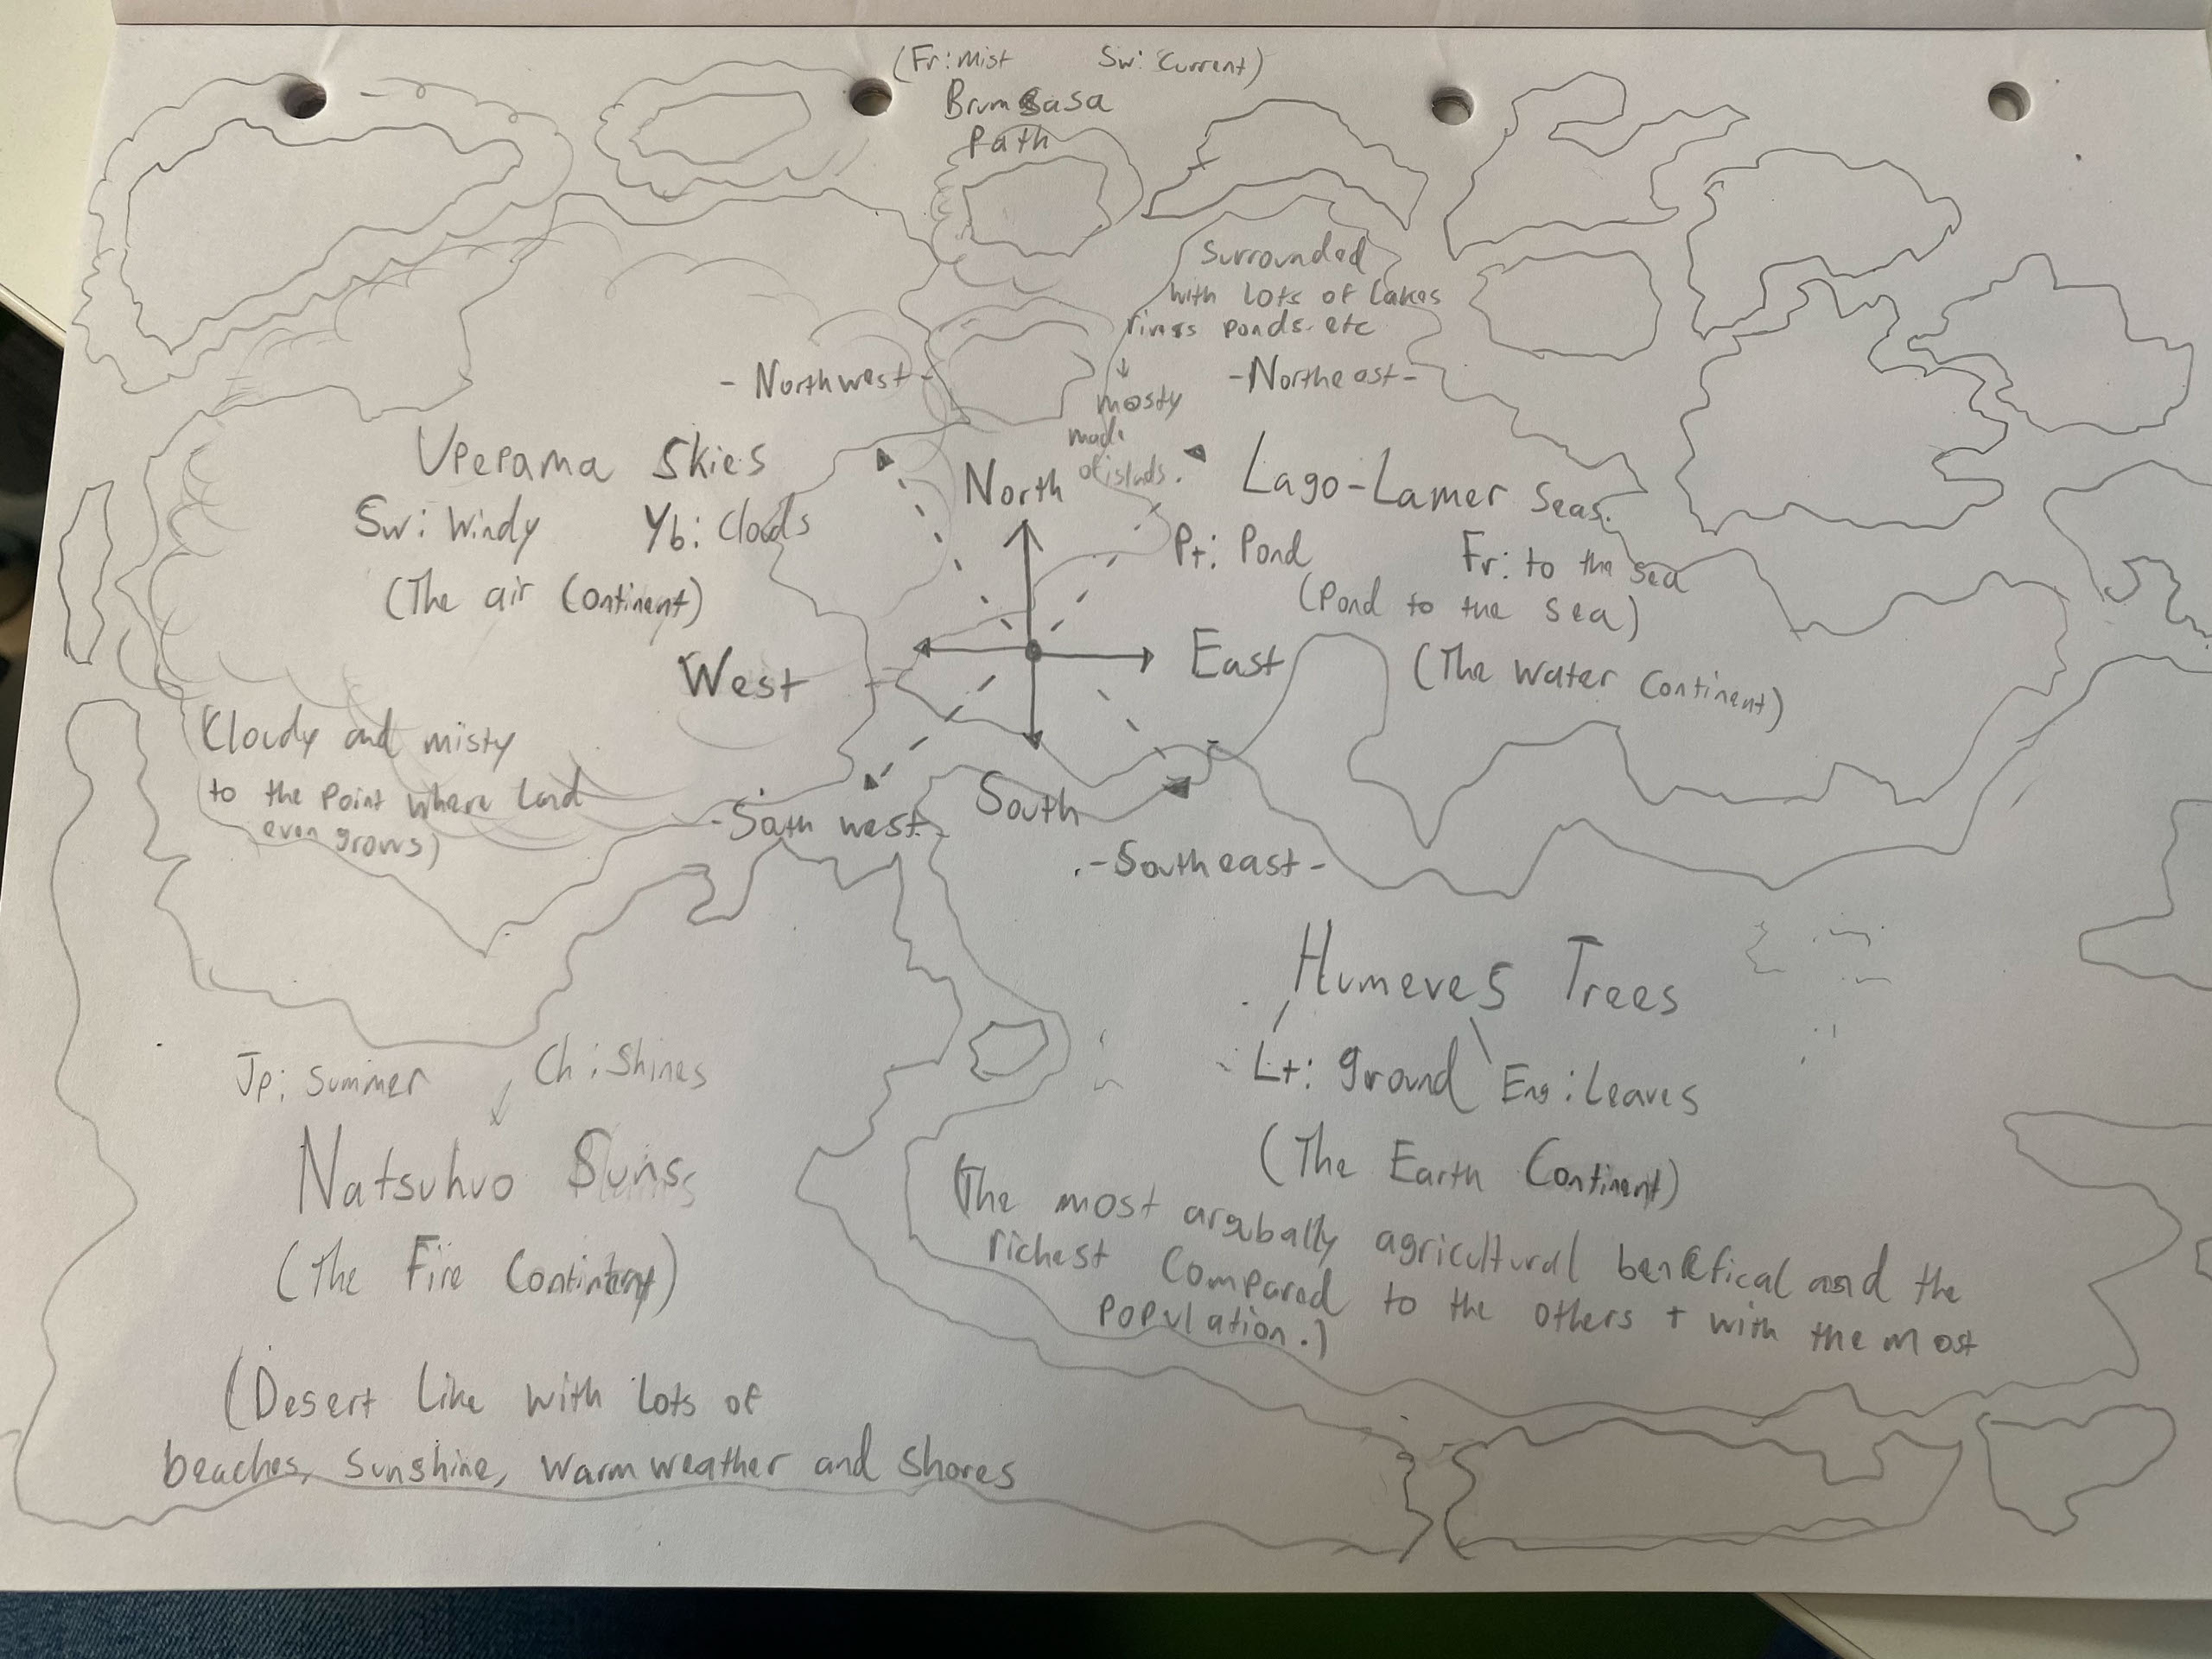 (Fr: Mist Sw: Current)
Brumsasa
Path
Surrounded
with lots of lakes
rivers ponds. etc
↓
mosty
made
of islads.
- Northwest -
- Northeast -
North
Veperama Skies
Sw: Windy Yb: Clouds
(The air Continent)
Lago-Lamer Seas.
Pt: Pond Fr: to the sea
(Pond to the sea)
(The Water Continent)
West
East
Cloudy and misty
to the point where land
even grows)
South
- South west -
- Southeast -
Humeves Trees
Lt: ground Eng: Leaves
(The Earth Continent)
(The most argubally agricultural benefical and the
richest Compared to the others + with the most
population.)
Jp: Summer Ch: Shines
Natsuhuo Suns
(The Fire Continent)
(Desert like with lots of
beaches, sunshine, warm weather and shores